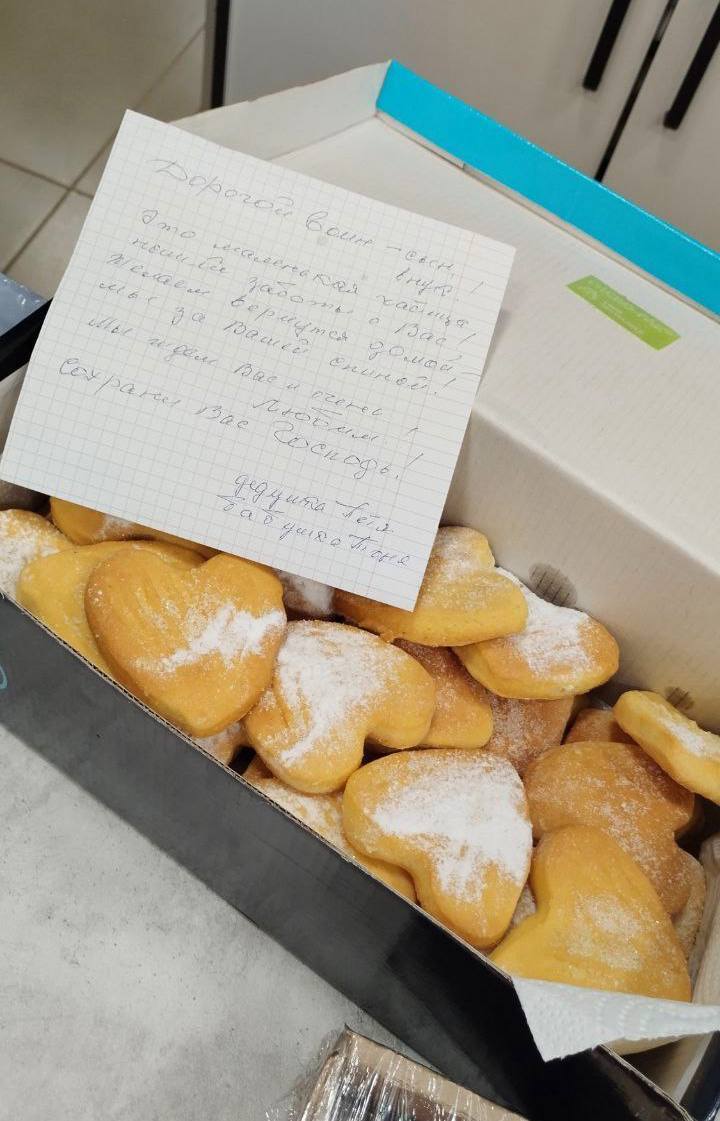 Дорогой воин - сын,
внук!
Это маленькая частица
нашей заботы о Вас!
Желаем вернутся домой,
мы за Вашей спиной!
Мы ждем Вас и очень
любим!
Сохрани Вас Господь!
дедушка Петя
бабушка Тоня